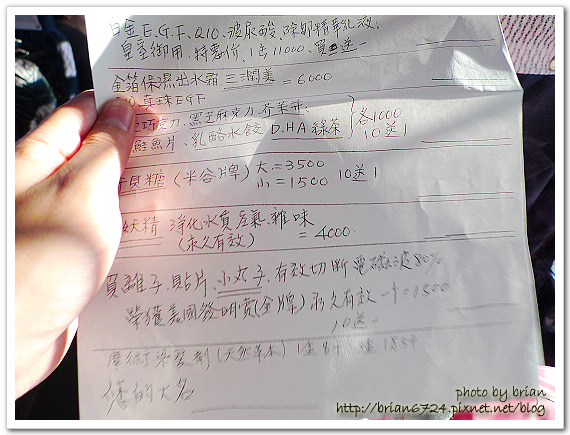 白金E.G.F、Q10、玻尿酸、除皺精華乳液、
皇室御用、特惠價、1盒11000、買一送一
金箔保濕出水霜 三潤美 = 6000
珍珠EGF
巧克力、黑芝麻克力、芥茉
鮭魚片、乳酪水餃 D.HA 綠茶 各1000 10送1
貝糖 (米谷牌) 大 = 3500
小 = 1500 10送1
妖精 淨化水質 臭氣、雜味
(永久有效) = 4000
負離子、貼片、小丸子、有效切斷電磁波80%
榮獲美國發明獎(金牌) 永久有效 一卡=1500
10送一
魔術染髮劑 (天然草本) 1盒
您的大名
photo by brian
http://brian6724.pixnet.net/blog